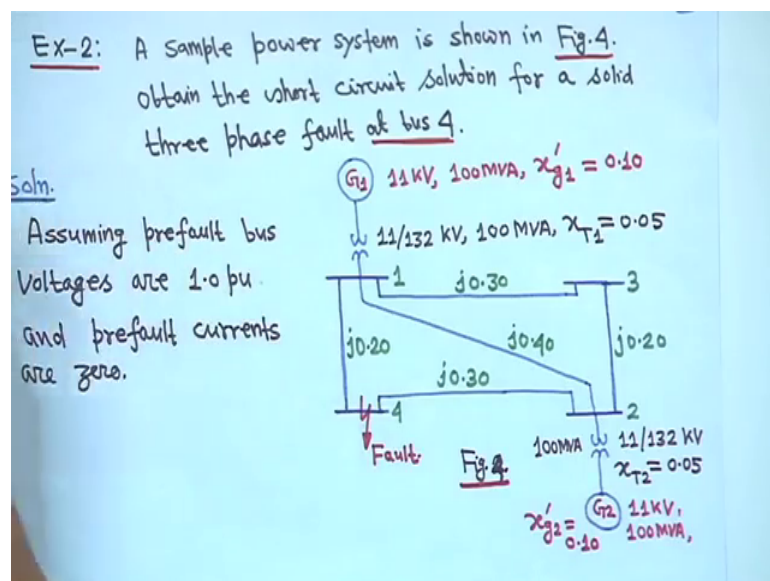 Ex-2: A sample power system is shown in Fig.4.
obtain the short circuit solution for a solid
three phase fault at bus 4.
Soln.
Assuming prefault bus
voltages are 1.0 pu
and prefault currents
are zero.
G1 11KV, 100MVA, x'g1 = 0.10
11/132 KV, 100 MVA, xT1 = 0.05
1 j0.30 3
j0.20 j0.40 j0.20
j0.30
4 2
Fault.
Fig.4.
100MVA 11/132 KV
xT2 = 0.05
G2 11KV,
100MVA,
x'g2 = 0.10